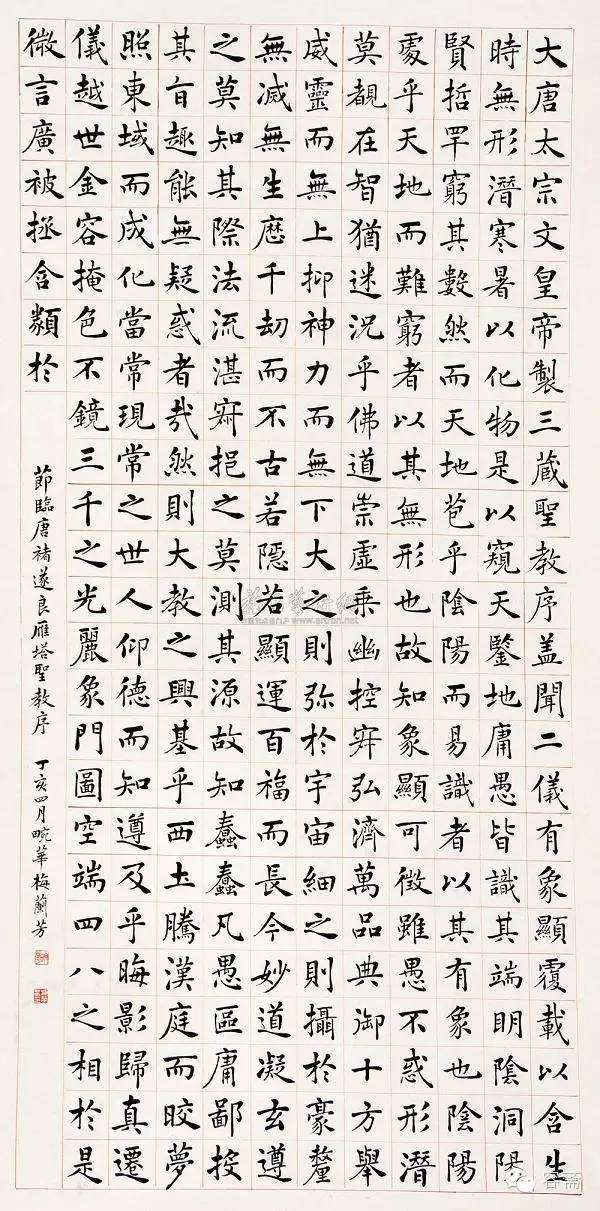 大唐太宗文皇帝製三蔵聖教序盖聞二儀有象顯覆載以含生
時無形潛寒暑以化物是以窺天鑒地庸愚皆識其端明陰洞陽
賢哲罕窮其數然而天地苞乎陰陽而易識者以其有象也陰陽
處乎天地而難窮者以其無形也故知象顯可徵雖愚不惑形潛
莫覩在智猶迷況乎佛道崇虛乗幽控寂弘濟萬品典御十方舉
威靈而無上抑神力而無下大之則弥於宇宙細之則攝於豪釐
無滅無生歷千劫而不古若隱若顯運百福而長今妙道凝玄遵
之莫知其際法流湛寂挹之莫測其源故知蠢蠢凡愚區庸鄙投
其旨趣能無疑惑者哉然則大教之興基乎西土騰漢庭而皎夢
照東域而成化當常現常之世人仰德而知遵及乎晦影歸真遷
儀越世金容掩色不鏡三千之光麗象門圖空端四八之相於是
微言廣被拯含類於
節臨唐褚遂良雁塔聖教序 丁亥四月畹華梅蘭芳
www.artron.net
容斋